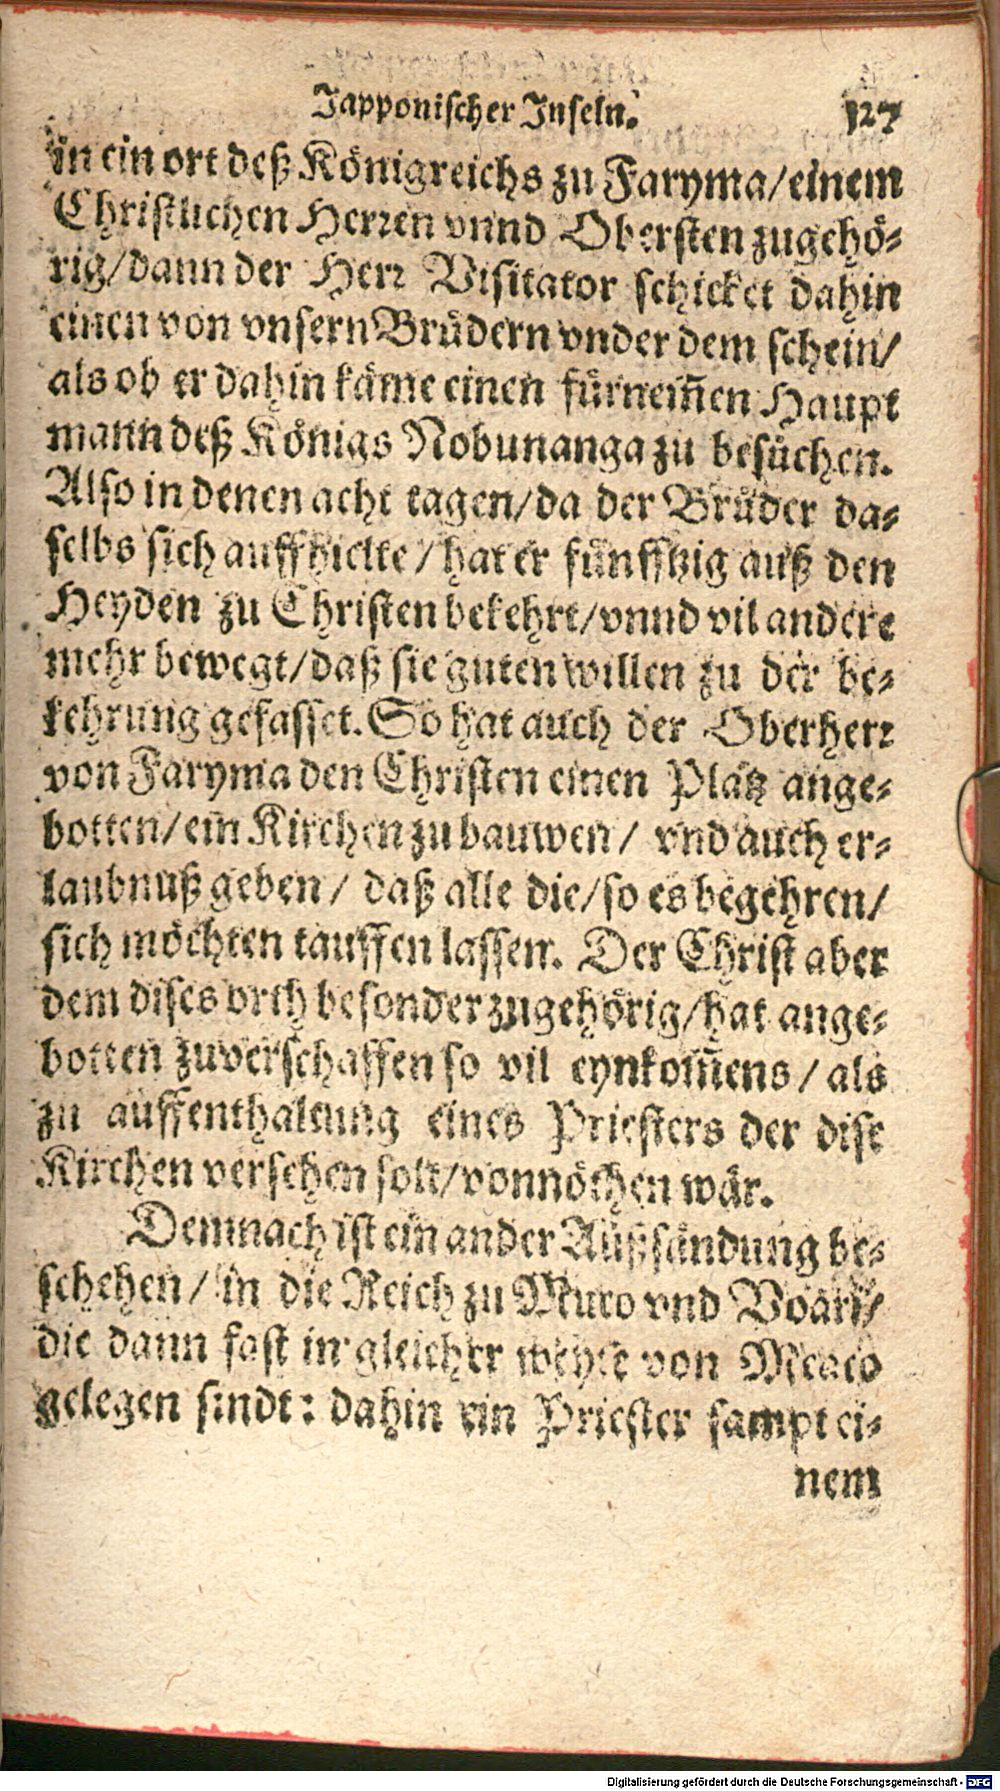 Japponischer Inseln. 127
in ein ort deß Königreichs zu Faryma/einem
Christlichen Herren vnnd Obersten zugehö-
rig/dann der Herr Visitator schicket dahin
einen von vnsern Brüdern vnder dem schein/
als ob er dahin käme einen fürnem̃en Haupt
mann deß Königs Nobunanga zu besüchen.
Also in denen acht tagen/da der Brüder da-
selbs sich auffhielte/hat er fünfftzig auß den
Heyden zu Christen bekehrt/vnnd vil andere
mehr bewegt/daß sie guten willen zu der be-
kehrung gefasset. So hat auch der Oberherr
von Faryma den Christen einen Platz ange-
botten/ein Kirchen zu bauwen/ vnd auch er-
laubnuß geben/ daß alle die/so es begehren/
sich möchten tauffen lassen. Der Christ aber
dem dises orth besonder zugehörig/hat ange-
botten zuverschaffen so vil eynkom̃ens/als
zu auffenthaltung eines Priesters der dise
Kirchen versehen solt/vonnöthen wär.
Demnach ist ein ander Außsändung be-
schehen/ in die Reich zu Muro vnd Voari/
die dann fast in gleicher weyte von Meaco
gelegen sindt: dahin ein Priester sampt ei-
nem
Digitalisierung gefördert durch die Deutsche Forschungsgemeinschaft - DFG